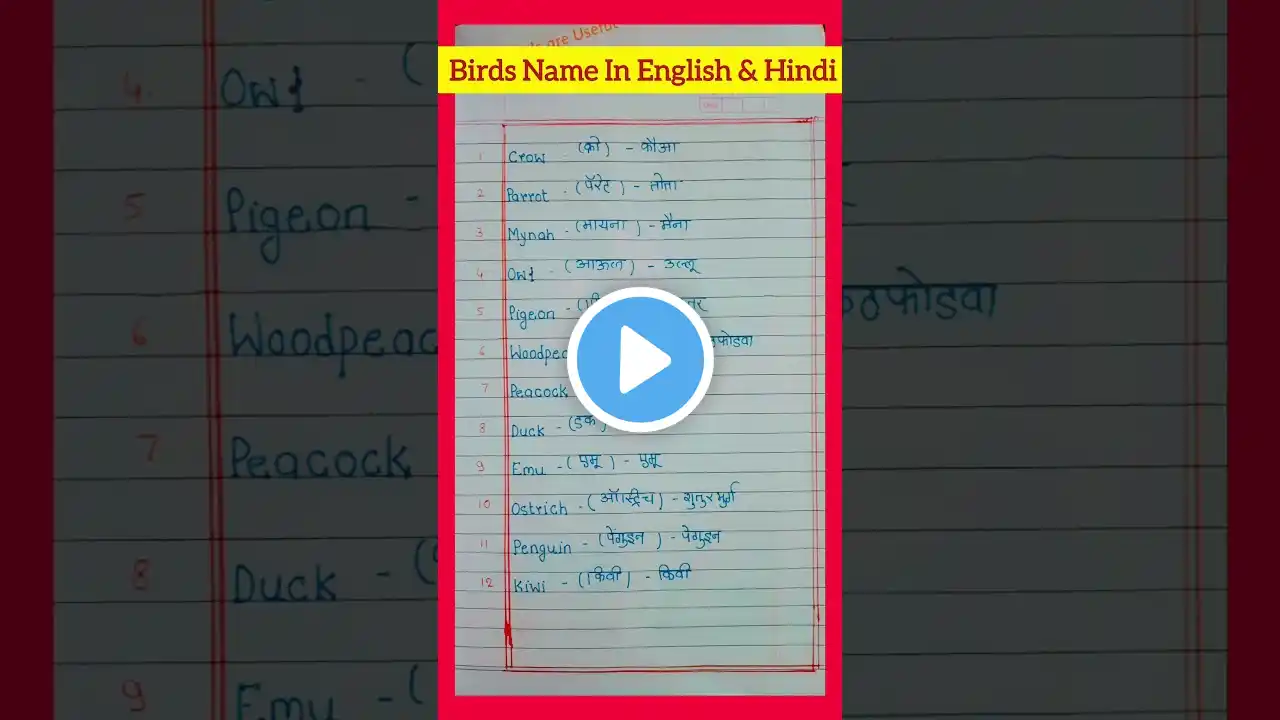 are Useful
Birds Name In English & Hindi
1 Crow - (क्रो) - कौआ
2 Parrot - (पॅरेट) - तोता
3 Mynah - (मायना) - मैना
4 Owl - (आऊल) - उल्लू
5 Pigeon -
6 Woodpec फोडवा
7 Peacock
8 Duck - (डक)
9 Emu - (एमू) - एमू
10 Ostrich - (ऑस्ट्रिच) - शुतुरमुर्ग
11 Penguin - (पेंगुइन) - पेंगुइन
12 Kiwi - (किवी) - किवी
4. Owl - (
5 Pigeon -
6 Woodpeac कठफोडवा
7 Peacock
8 Duck - (
9 Emu - (